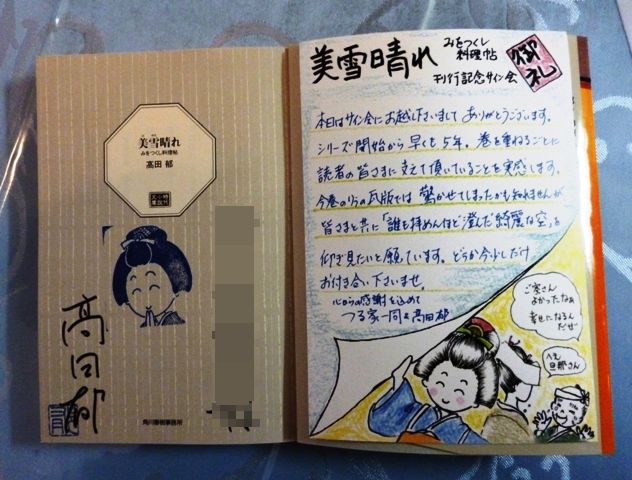 美雪晴れ
みをつくし料理帖
高田 郁
高田郁
角川春樹事務所
美雪晴れ
みをつくし
料理帖
刊行記念サイン会
御礼
本日はサイン会にお越し下さいまして ありがとうございます。
シリーズ開始から早くも5年。巻を重ねるごとに
読者の皆さまに支えて頂いていることを実感します。
今巻のりう瓦版では 驚かせてしまったかも知れませんが
皆さまと共に「誰も拝めんほど澄んだ綺麗な空」を
仰ぎ見たいと願っています。どうか今少しだけ
お付き合い下さいませ。
心からの感謝を込めて
つる家一同&高田郁
ご寮さん
よかったなぁ
幸せになるん
だぜ
へえ
旦那さん